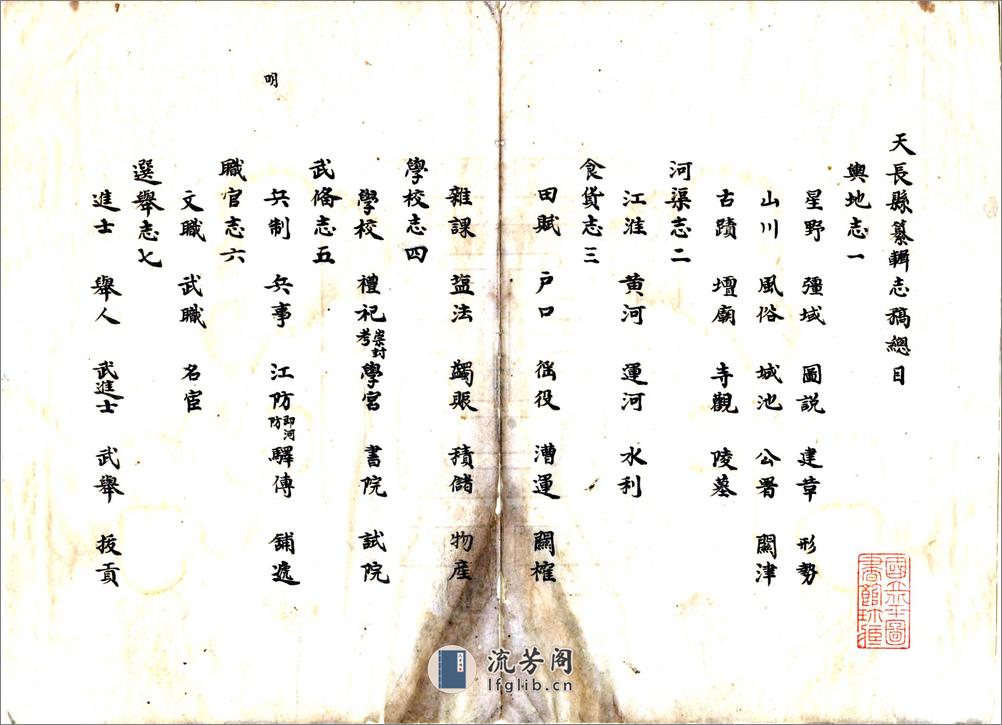 天長縣纂輯志稿總目
輿地志一
星野 彊域 圖説 建革 形勢
山川 風俗 城池 公署 關津
古蹟 壇廟 寺觀 陵墓
河渠志二
江淮 黄河 運河 水利
食貨志三
田賦 戸口 徭役 漕運 關榷
雜課 盐法 蠲賑 積儲 物産
學校志四
學校 禮祀崇封考 學宮 書院 試院
武備志五
明
兵制 兵事 江防即河防 驛傳 鋪遞
職官志六
文職 武職 名宦
選舉志七
進士 舉人 武進士 武舉 拔貢
國立北平圖書館珍藏
流芳阁
lfglib.cn